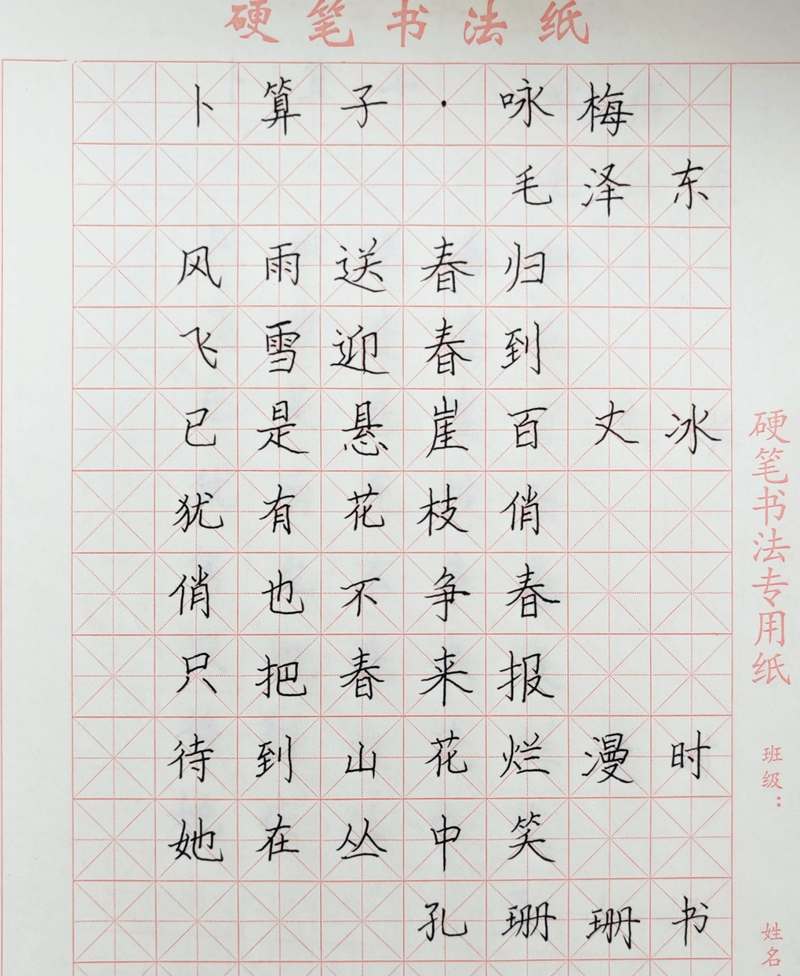 硬笔书法纸
卜算子·咏梅
毛泽东
风雨送春归
飞雪迎春到
已是悬崖百丈冰
犹有花枝俏
俏也不争春
只把春来报
待到山花烂漫时
她在丛中笑
孔珊珊书
硬笔书法专用纸
班级：
姓名